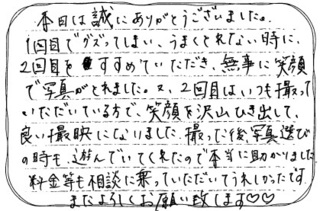 本日は誠にありがとうございました。
1回目でグズってしまい、うまくとれない時に、
2回目をすすめていただき、無事に笑顔
で写真がとれました。又、2回目はいつも撮って
いただいている方で、笑顔を沢山ひき出して、
良い撮映になりました。撮った後写真選び
の時も、遊んでいてくれたので本当に助かりました
料金等も相談に乗っていただいてうれしかったです
またよろしくお願い致します♡♡